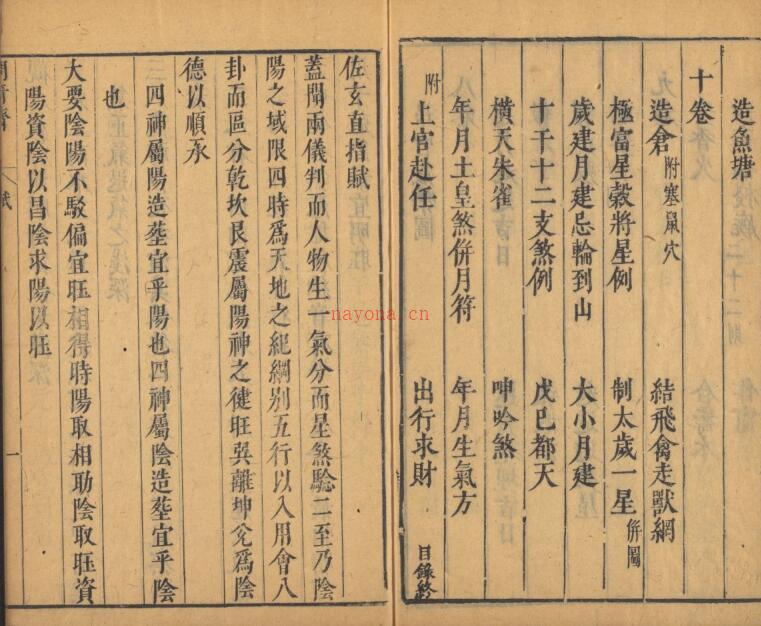 造魚塘
十卷
造倉 附塞鼠穴 結飛禽走獸網
極富星穀將星例 制太歲一星 併圖
歲建月建忌輪到山 大小月建
十干十二支煞例 戊巳都天
橫天朱雀 呻吟煞
年月土皇煞併月符 年月生氣方
附 上官赴任 出行求財 目錄終
佐玄直指賦
蓋聞兩儀判而人物生一氣分而星煞驗二至乃陰
陽之域限四時爲天地之紀綱別五行以入用會八
卦而區分乾坎艮震屬陽神之健旺巽離坤兊爲陰
德以順承
四神屬陽造塟宜乎陽也四神屬陰造塟宜乎陰
也
大要陰陽不駁偏宜旺相得時陽取相助陰取旺資
陽資陰以昌陰求陽以旺
賦
一
nayona.cn